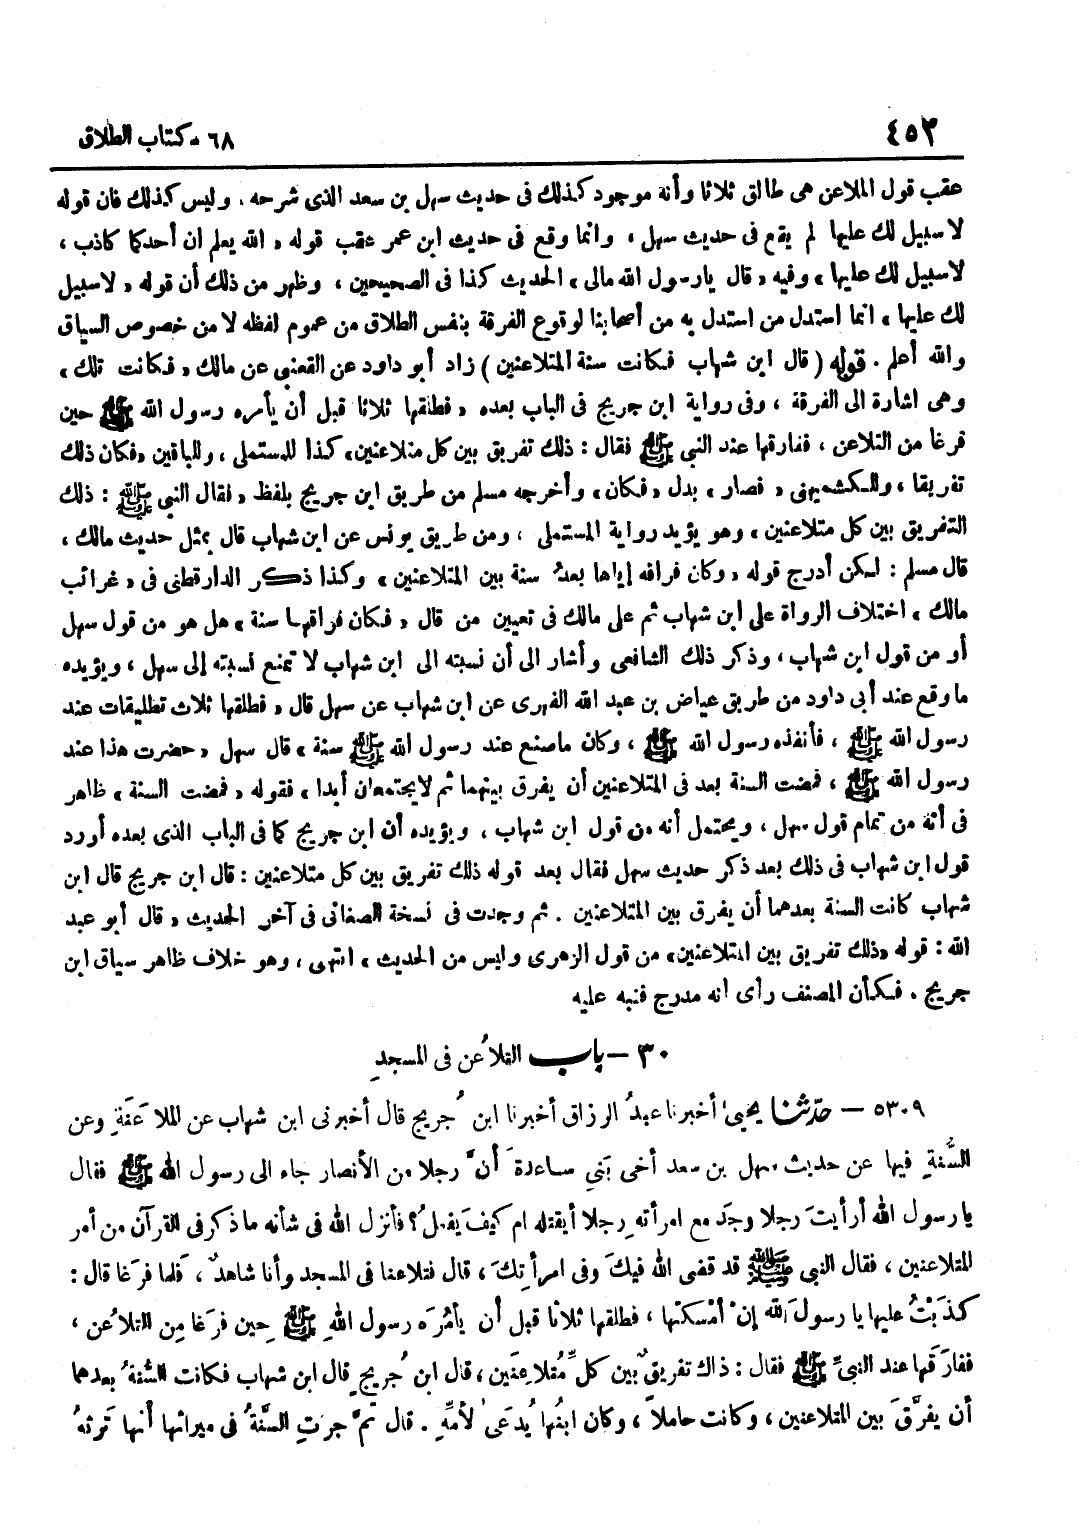 ٤٥٢
٦٨ - كتاب الطلاق
عقب قول الملاعن هى طالق ثلاثا وأنه موجود كذلك فى حديث سهل بن سعد الذى شرحه . وليس كذلك فان قوله
لا سبيل لك عليها لم يقع فى حديث سهل ، وانما وقع فى حديث ابن عمر عقب قوله « الله يعلم ان أحدكما كاذب ،
لا سبيل لك عليها » وفيه « قال يا رسول الله مالى » الحديث كذا فى الصحيحين ، وظهر من ذلك أن قوله « لا سبيل
لك عليها » انما استدل من استدل به من أصحابنا لوقوع الفرقة بنفس الطلاق من عموم لفظه لا من خصوص السياق
والله أعلم . قوله ( قال ابن شهاب فكانت سنة المتلاعنين ) زاد أبو داود عن القعنبى عن مالك « فكانت تلك »
وهى اشارة الى الفرقة ، وفى رواية ابن جريج فى الباب بعده « فطلقها ثلاثا قبل أن يأمره رسول الله ﷺ حين
فرغا من التلاعن ، ففارقها عند النبى ﷺ فقال : ذلك تفريق بين كل متلاعنين » كذا للمستملى ، وللباقين « فكان ذلك
تفريقا ، وللكشميهنى « فصار » بدل « فكان » وأخرجه مسلم من طريق ابن جريج بلفظ « فقال النبى ﷺ : ذلك
التفريق بين كل متلاعنين » وهو يؤيد رواية المستملى ، ومن طريق يونس عن ابن شهاب قال بمثل حديث مالك ،
قال مسلم : لكن أدرج قوله « وكان فراقه إياها بعدُ سنة بين المتلاعنين » وكذا ذكر الدارقطنى فى « غرائب
مالك » اختلاف الرواة على ابن شهاب ثم على مالك فى تعيين من قال « فكان فراقها سنة » هل هو من قول سهل
أو من قول ابن شهاب ، وذكر ذلك الشافعى وأشار الى أن نسبته الى ابن شهاب لا تمنع نسبته إلى سهل ، ويؤيده
ما وقع عند أبى داود من طريق عياض بن عبد الله الفهرى عن ابن شهاب عن سهل قال « فطلقها ثلاث تطليقات عند
رسول الله ﷺ ، فأنفذه رسول الله ﷺ ، وكان ماصنع عند رسول الله ﷺ سنة » قال سهل « حضرت هذا عند
رسول الله ﷺ ، فمضت السنة بعد فى المتلاعنين أن يفرق بينهما ثم لا يجتمعان أبدا » فقوله « فمضت السنة » ظاهر
فى أنه من تمام قول سهل ، ويحتمل أنه من قول ابن شهاب ، ويؤيده أن ابن جريج كما فى الباب الذى بعده أورد
قول ابن شهاب فى ذلك بعد ذكر حديث سهل فقال بعد قوله ذلك تفريق بين كل متلاعنين : قال ابن جريج قال ابن
شهاب كانت السنة بعدهما أن يفرق بين المتلاعنين . ثم وجدت فى نسخة الصغانى فى آخر الحديث « قال أبو عبد
الله : قوله « ذلك تفريق بين المتلاعنين » من قول الزهرى وليس من الحديث » انتهى ، وهو خلاف ظاهر سياق ابن
جريج . فكأن المصنف رأى أنه مدرج فنبه عليه
٣٠ - باب التلاعُن فى المسجدِ
٥٣٠٩ - حدّثنا يحيىٰ أخبرنا عبدُ الرزاق أخبرنا ابن جُريج قال أخبرنى ابن شهاب عن الملاعَنةِ وعن
السُّنةِ فيها عن حديث سهل بن سعد أخى بَنى ساعدةَ أنَّ رجلا من الأنصار جاء الى رسول الله ﷺ فقال
يا رسول الله أرأيتَ رجلا وجدَ مع امرأتهِ رجلا أيقتله ام كيفَ يَفعلُ؟ فأنزل الله فى شأنه ما ذكر فى القرآن من أمر
المتلاعنين ، فقال النبى ﷺ قد قضى الله فيكَ وفى امرأتِكَ ، قال فتلاعنا فى المسجد وأنا شاهدٌ ، فلما فرَغا قال :
كذَبْتُ عليها يا رسولَ الله إنْ أمْسكتها ، فطلقها ثلاثا قبل أن يأمُرَه رسول اللهِ ﷺ حِين فرَغا مِن التلاعُن ،
ففارَقها عند النبىِّ ﷺ فقال : ذاك تفريقٌ بين كلِّ مُتلاعِنَين ، قال ابن جُريجٍ قال ابن شهاب فكانت السُّنةُ بعدهما
أن يفرَّقَ بين المتلاعنين ، وكانت حاملاً ، وكان ابنُها يُدعَىٰ لأُمهِ . قال ثمَّ جرتِ السنَّةُ فى ميراثها أنها تَرثهُ